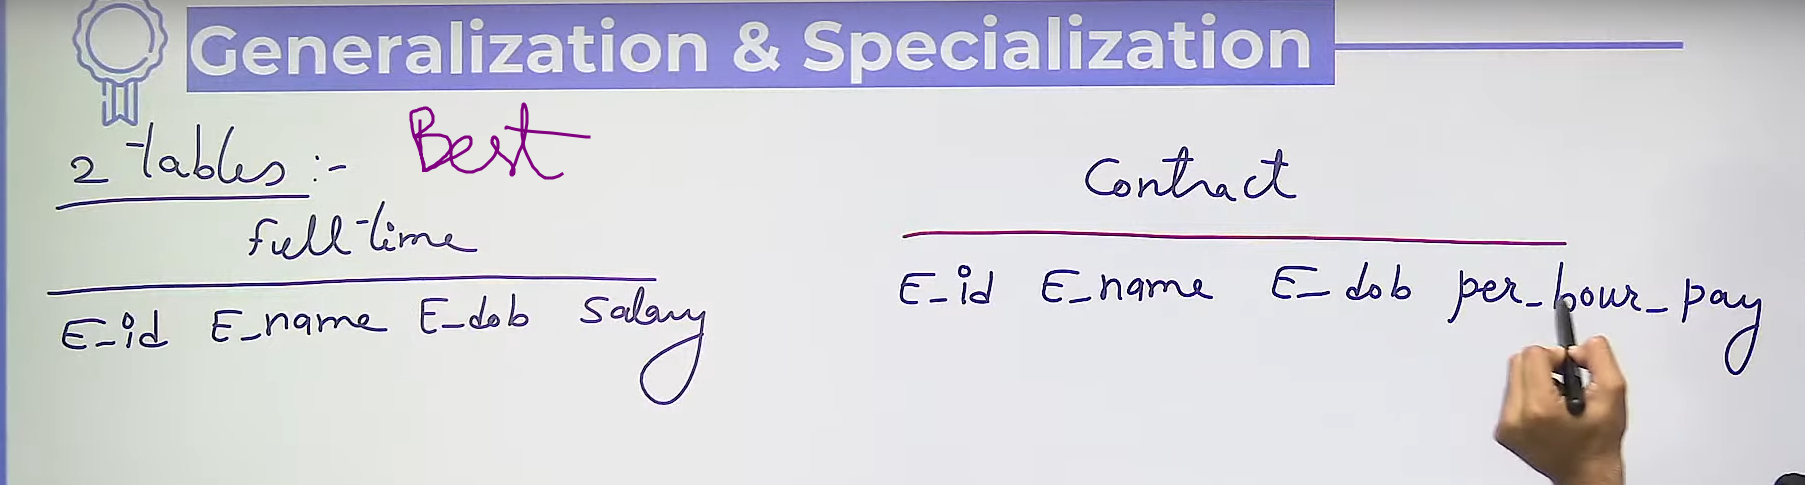 Generalization & Specialization
2 tables :- Best
full-time
E_id E_name E_dob Salary
Contract
E_id E_name E_dob per_hour_pay